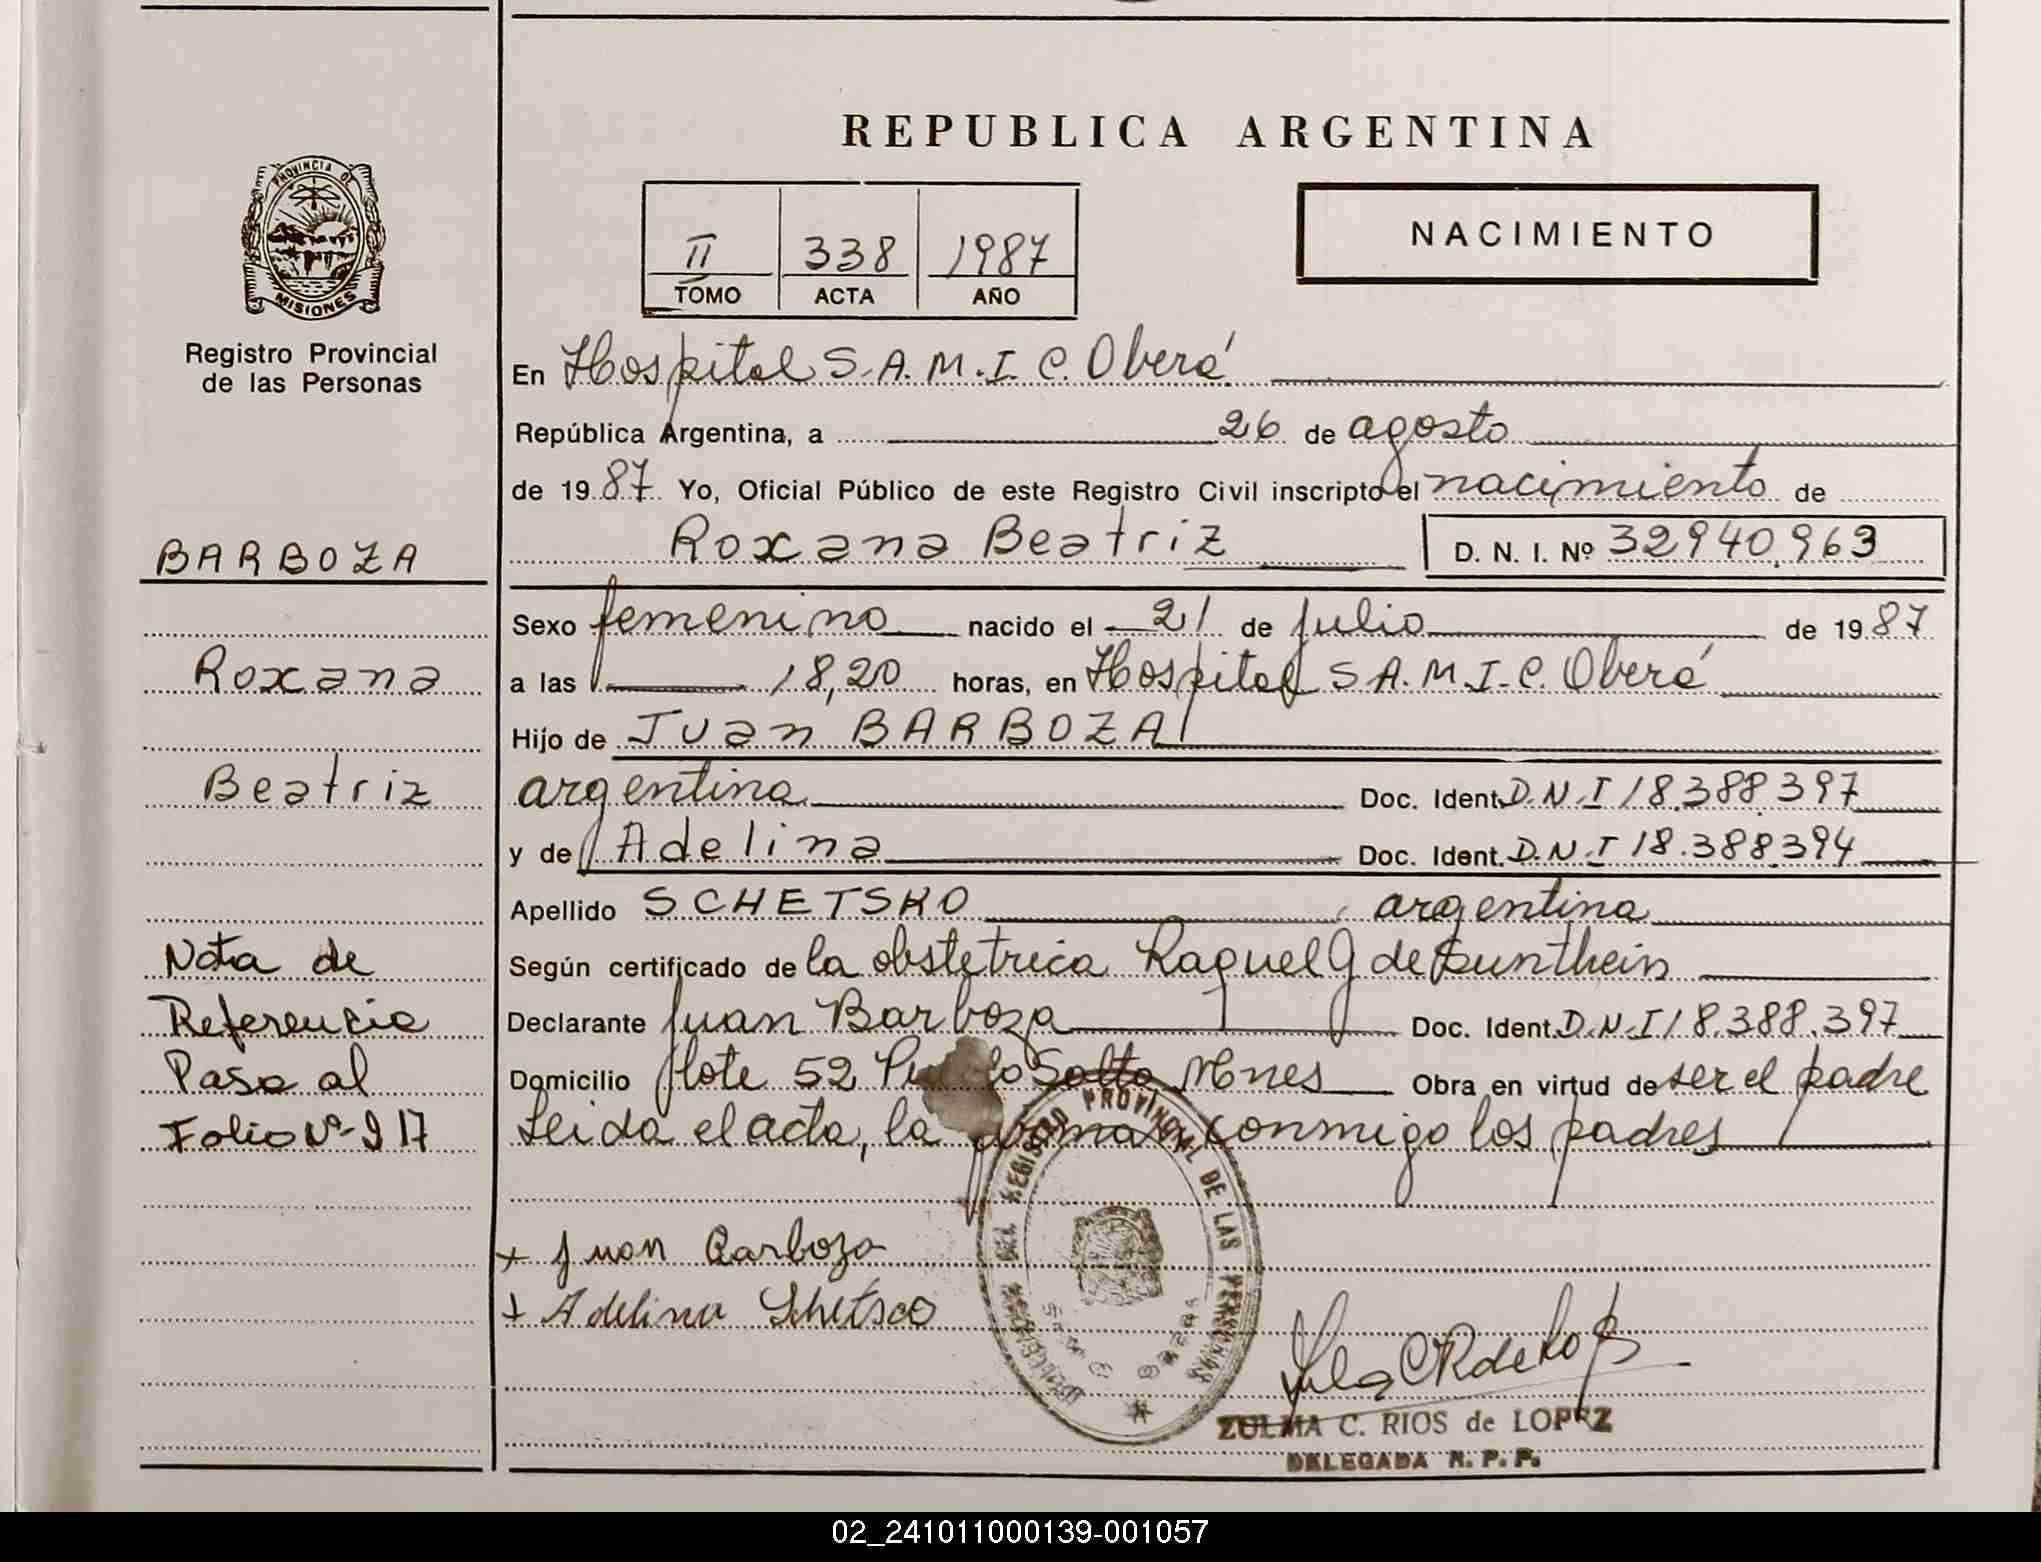 REPUBLICA ARGENTINA
PROVINCIA DE
MISIONES
Registro Provincial
de las Personas
II 338 1987
TOMO ACTA AÑO
NACIMIENTO
En Hospital S.A.M.I.C. Oberá
República Argentina, a 26 de agosto
de 1987. Yo, Oficial Público de este Registro Civil inscripto el nacimiento de
Roxana Beatriz D. N. I. Nº 32940.963
BARBOZA
Roxana
Beatriz
Nota de
Referencia
Pasa al
Folio Nº 217
Sexo femenino nacido el 21 de julio de 1987
a las 18,20 horas, en Hospital S.A.M.I.C. Oberá
Hijo de Juan BARBOZA
argentina Doc. Ident. D.N.I 18.388.397
y de Adelina Doc. Ident. D.N.I 18.388.394
Apellido SCHETSKO argentina
Según certificado de la obstetrica Raquel G de
Declarante Juan Barboza Doc. Ident. D.N.I 18.388.397
Domicilio lote 52 Salto Mnes Obra en virtud de ser el padre
Leida el acta, la firman conmigo los padres
+ Juan Barboza
+ Adelina Schetsco
REGISTRO PROVINCIAL DE LAS PERSONAS
ZULMA C. RIOS de LOPEZ
DELEGADA R. P. P.
02_241011000139-001057